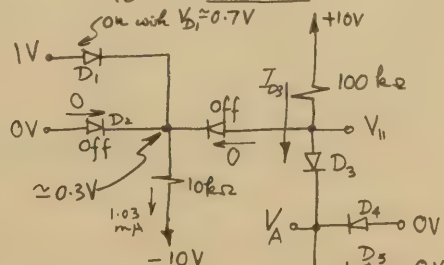 on with V_D1 ≃ 0.7V
+10V
1V
D1
I_D3
100 kΩ
0
off
0V
D2
off
V11
0
D3
≃0.3V
10kΩ
1.03
mA
V_A
D4
0V
-10V
D5
0V